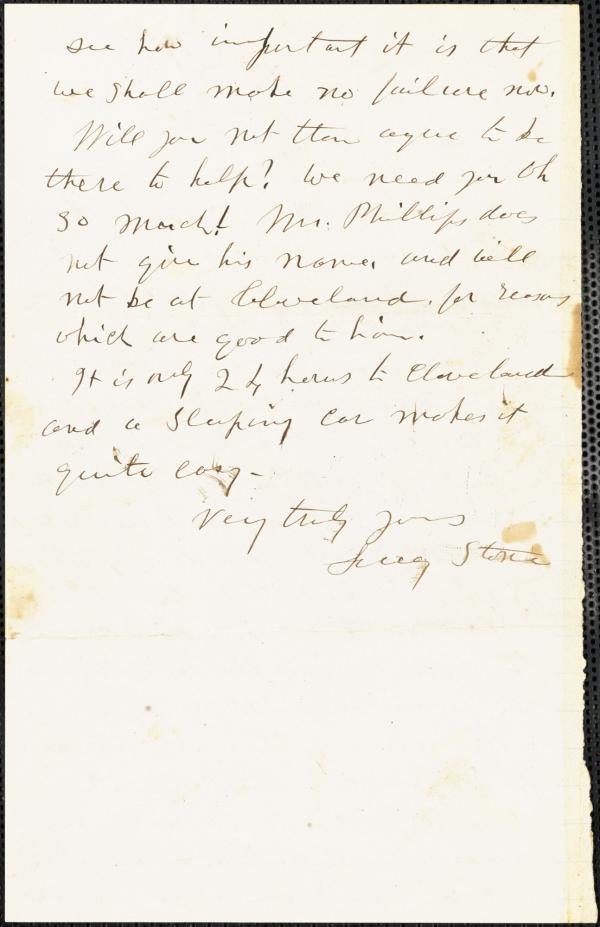 see how important it is that
we shall make no failure now.
Will you not then agree to be
there to help? We need you Oh
so much! Mr. Phillips does
not give his name, and will
not be at Cleveland, for reasons
which are good to him.
It is only 24 hours to Cleveland
and a sleeping car makes it
quite easy-
Very truly yours
Lucy Stone